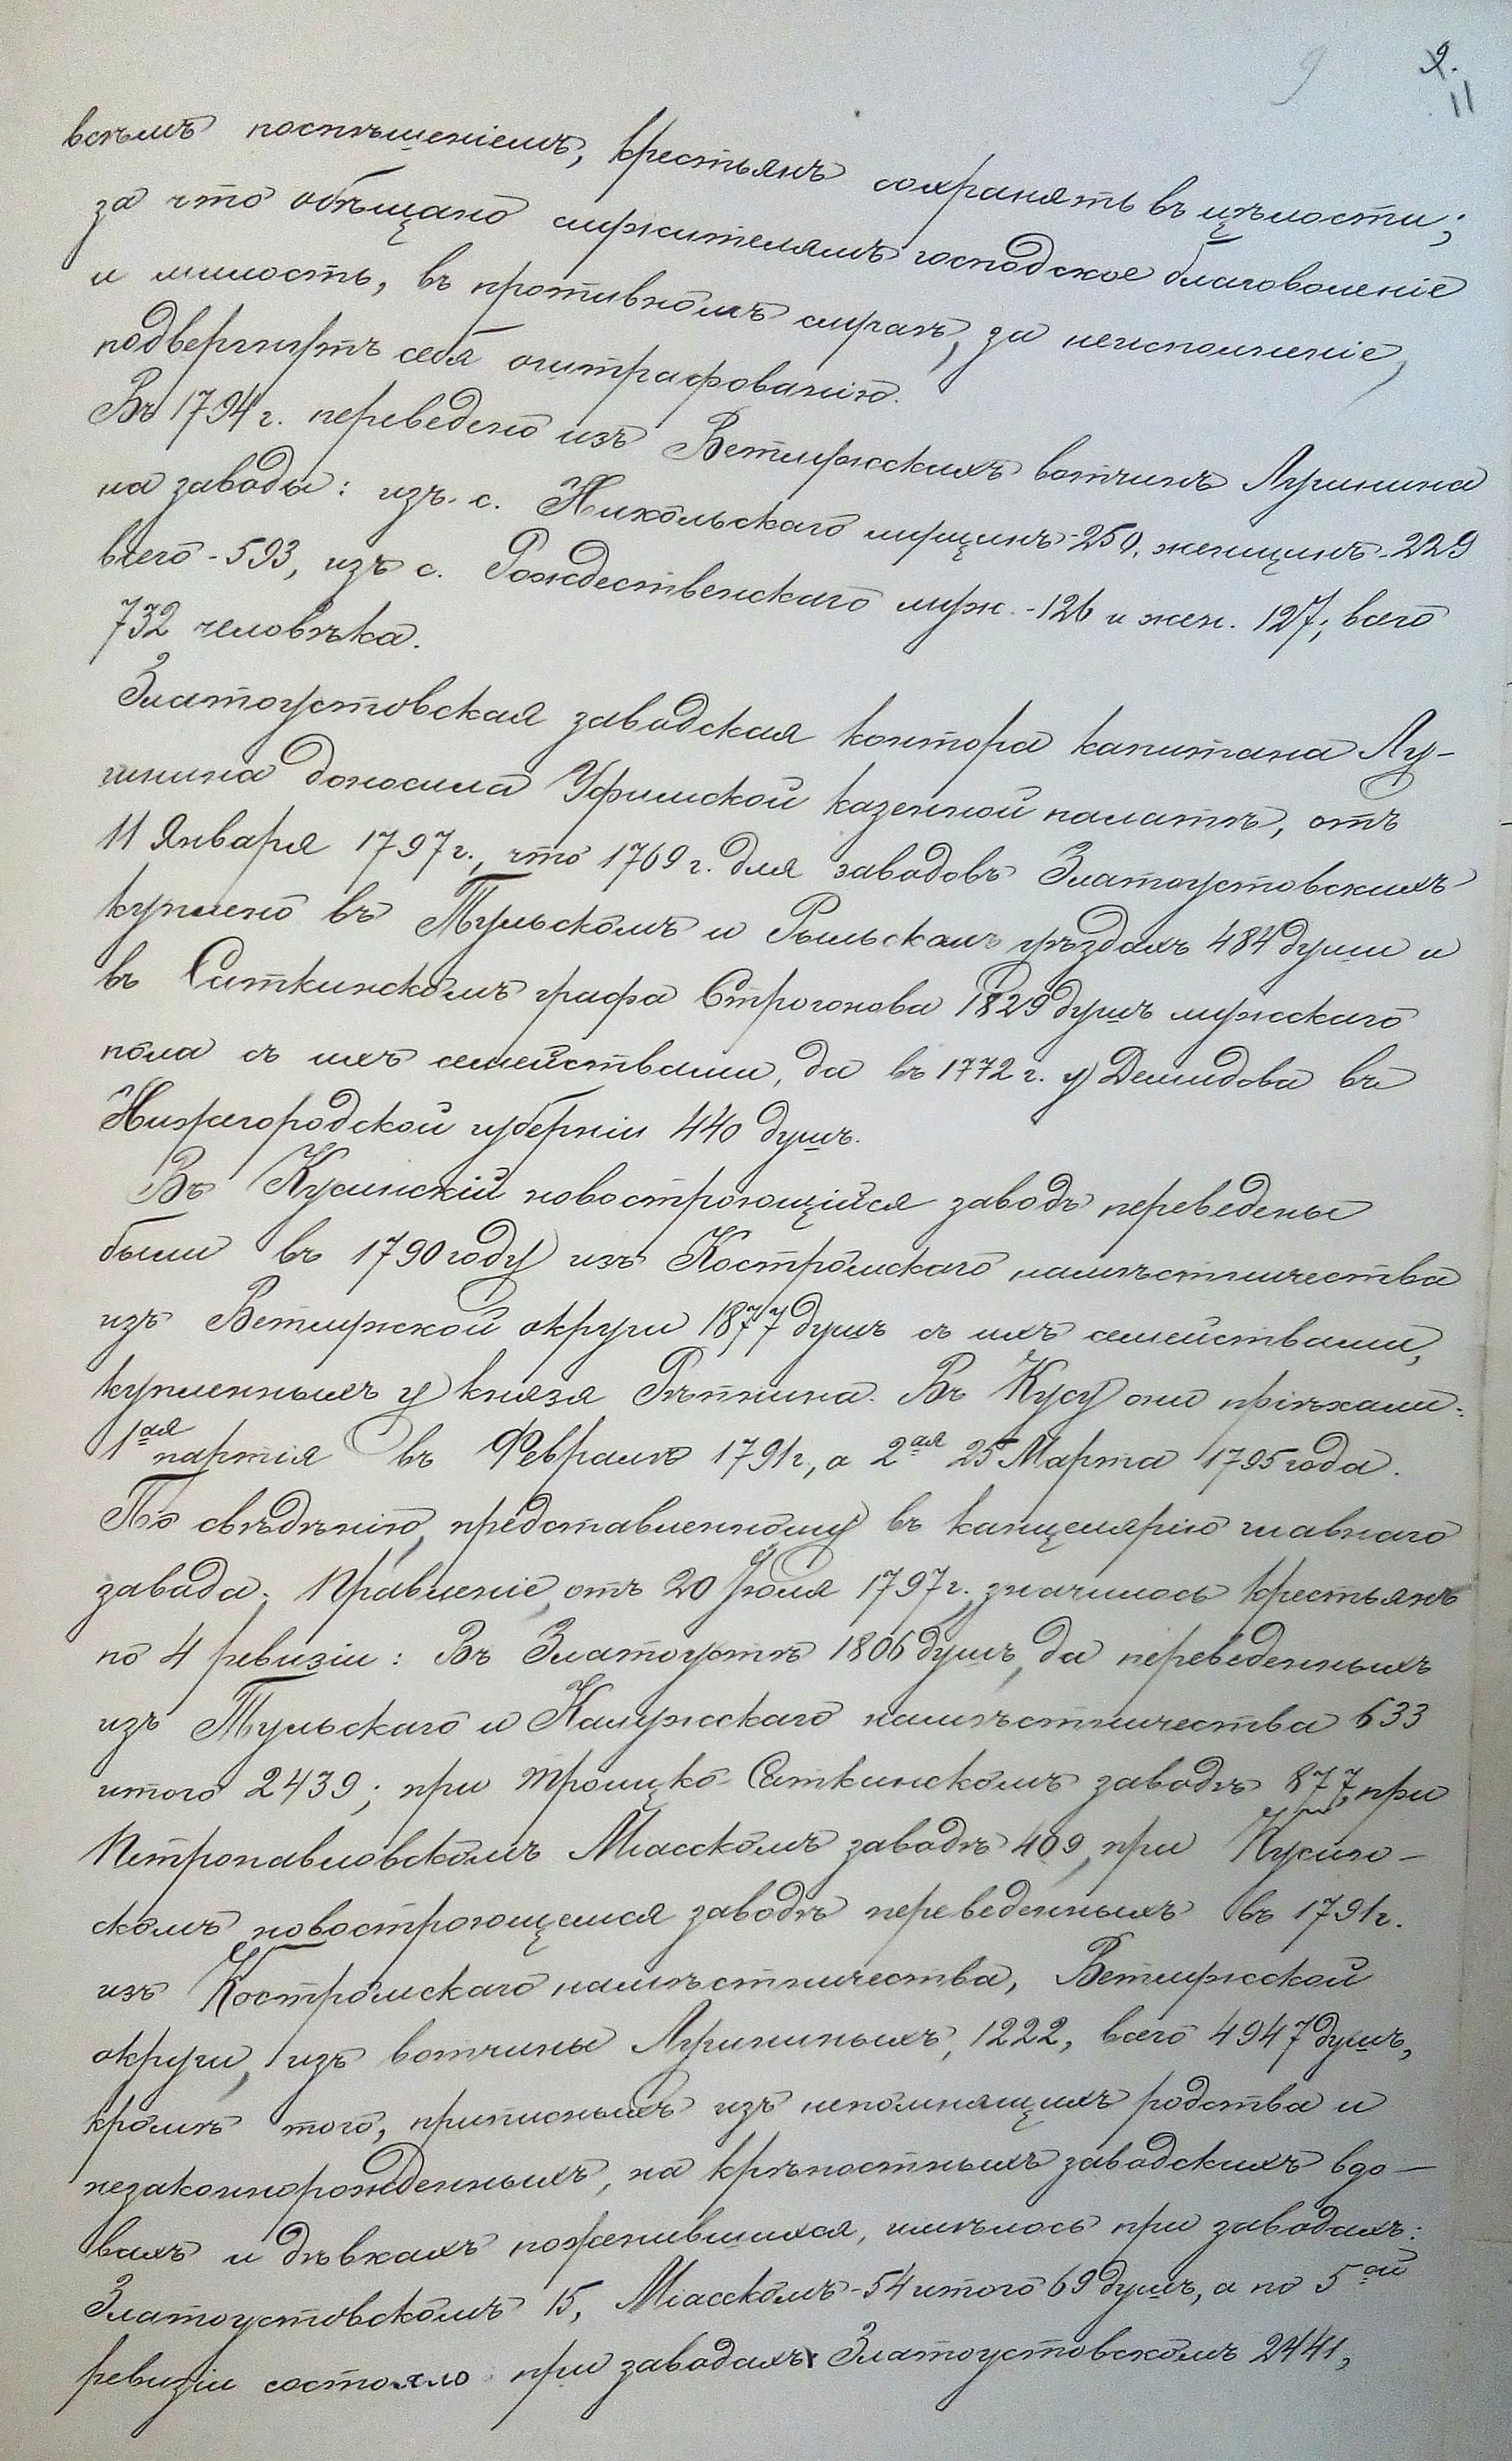 9 9.
11
всѣмъ поспѣшеніемъ, крестьянъ сохранять въ цѣлости;
за что обѣщано служителямъ господское благоволеніе
и милость, въ противномъ случаѣ, за неисполненіе,
подвергнутъ себя оштрафованію.
Въ 1794 г. переведено изъ Ветлужскихъ вотчинъ Лугинина
на заводы: изъ с. Никольскаго мущинъ-250, женщинъ-229
всего-593, изъ с. Рождественскаго муж.-126 и жен. 127; всего
732 человѣка.
Златоустовская заводская контора капитана Лу-
гинина доносила Уфимской казенной палатѣ, отъ
11 Января 1797 г., что 1769 г. для заводовъ Златоустовскихъ
куплено въ Тульскомъ и Рыльскомъ уѣздахъ 484 души и
въ Саткинскомъ графа Строгонова 1829 душъ мужскаго
пола съ ихъ семействами, да въ 1772 г. у Демидова въ
Нижегородской губерніи 440 душъ.
Въ Кусинскій новостроющійся заводъ переведены
были въ 1790 году изъ Костромскаго намѣстничества
изъ Ветлужской округи 1877 душъ съ ихъ семействами,
купленныхъ у князя Рѣпнина. Въ Кусу они пріѣхали:
1ая партія въ Февралѣ 1791 г., а 2ая 25 Марта 1795 года.
По свѣдѣнію, представленному въ канцелярію главнаго
завода. Правленіе, отъ 20 Іюля 1797 г. значилось крестьянъ
по 4 ревизіи: Въ Златоустѣ 1806 душъ, да переведенныхъ
изъ Тульскаго и Калужскаго намѣстничества 633
итого 2439; при Троицко-Саткинскомъ заводѣ 877, при
Петропавловскомъ Міасскомъ заводѣ 409, при Кусин-
скомъ новостроющемся заводѣ переведенныхъ въ 1791 г.
изъ Костромскаго намѣстничества, Ветлужской
округи, изъ вотчины Лугининыхъ, 1222, всего 4947 душъ,
кромѣ того, приписныхъ изъ непомнящихъ родства и
незаконнорожденныхъ, на крѣпостныхъ заводскихъ вдо-
вахъ и дѣвкахъ поженившихся, имѣлось при заводахъ:
Златоустовскомъ 15, Міасскомъ-54 итого 69 душъ, а по 5ой
ревизіи состояло при заводахъ Златоустовскомъ 2441,